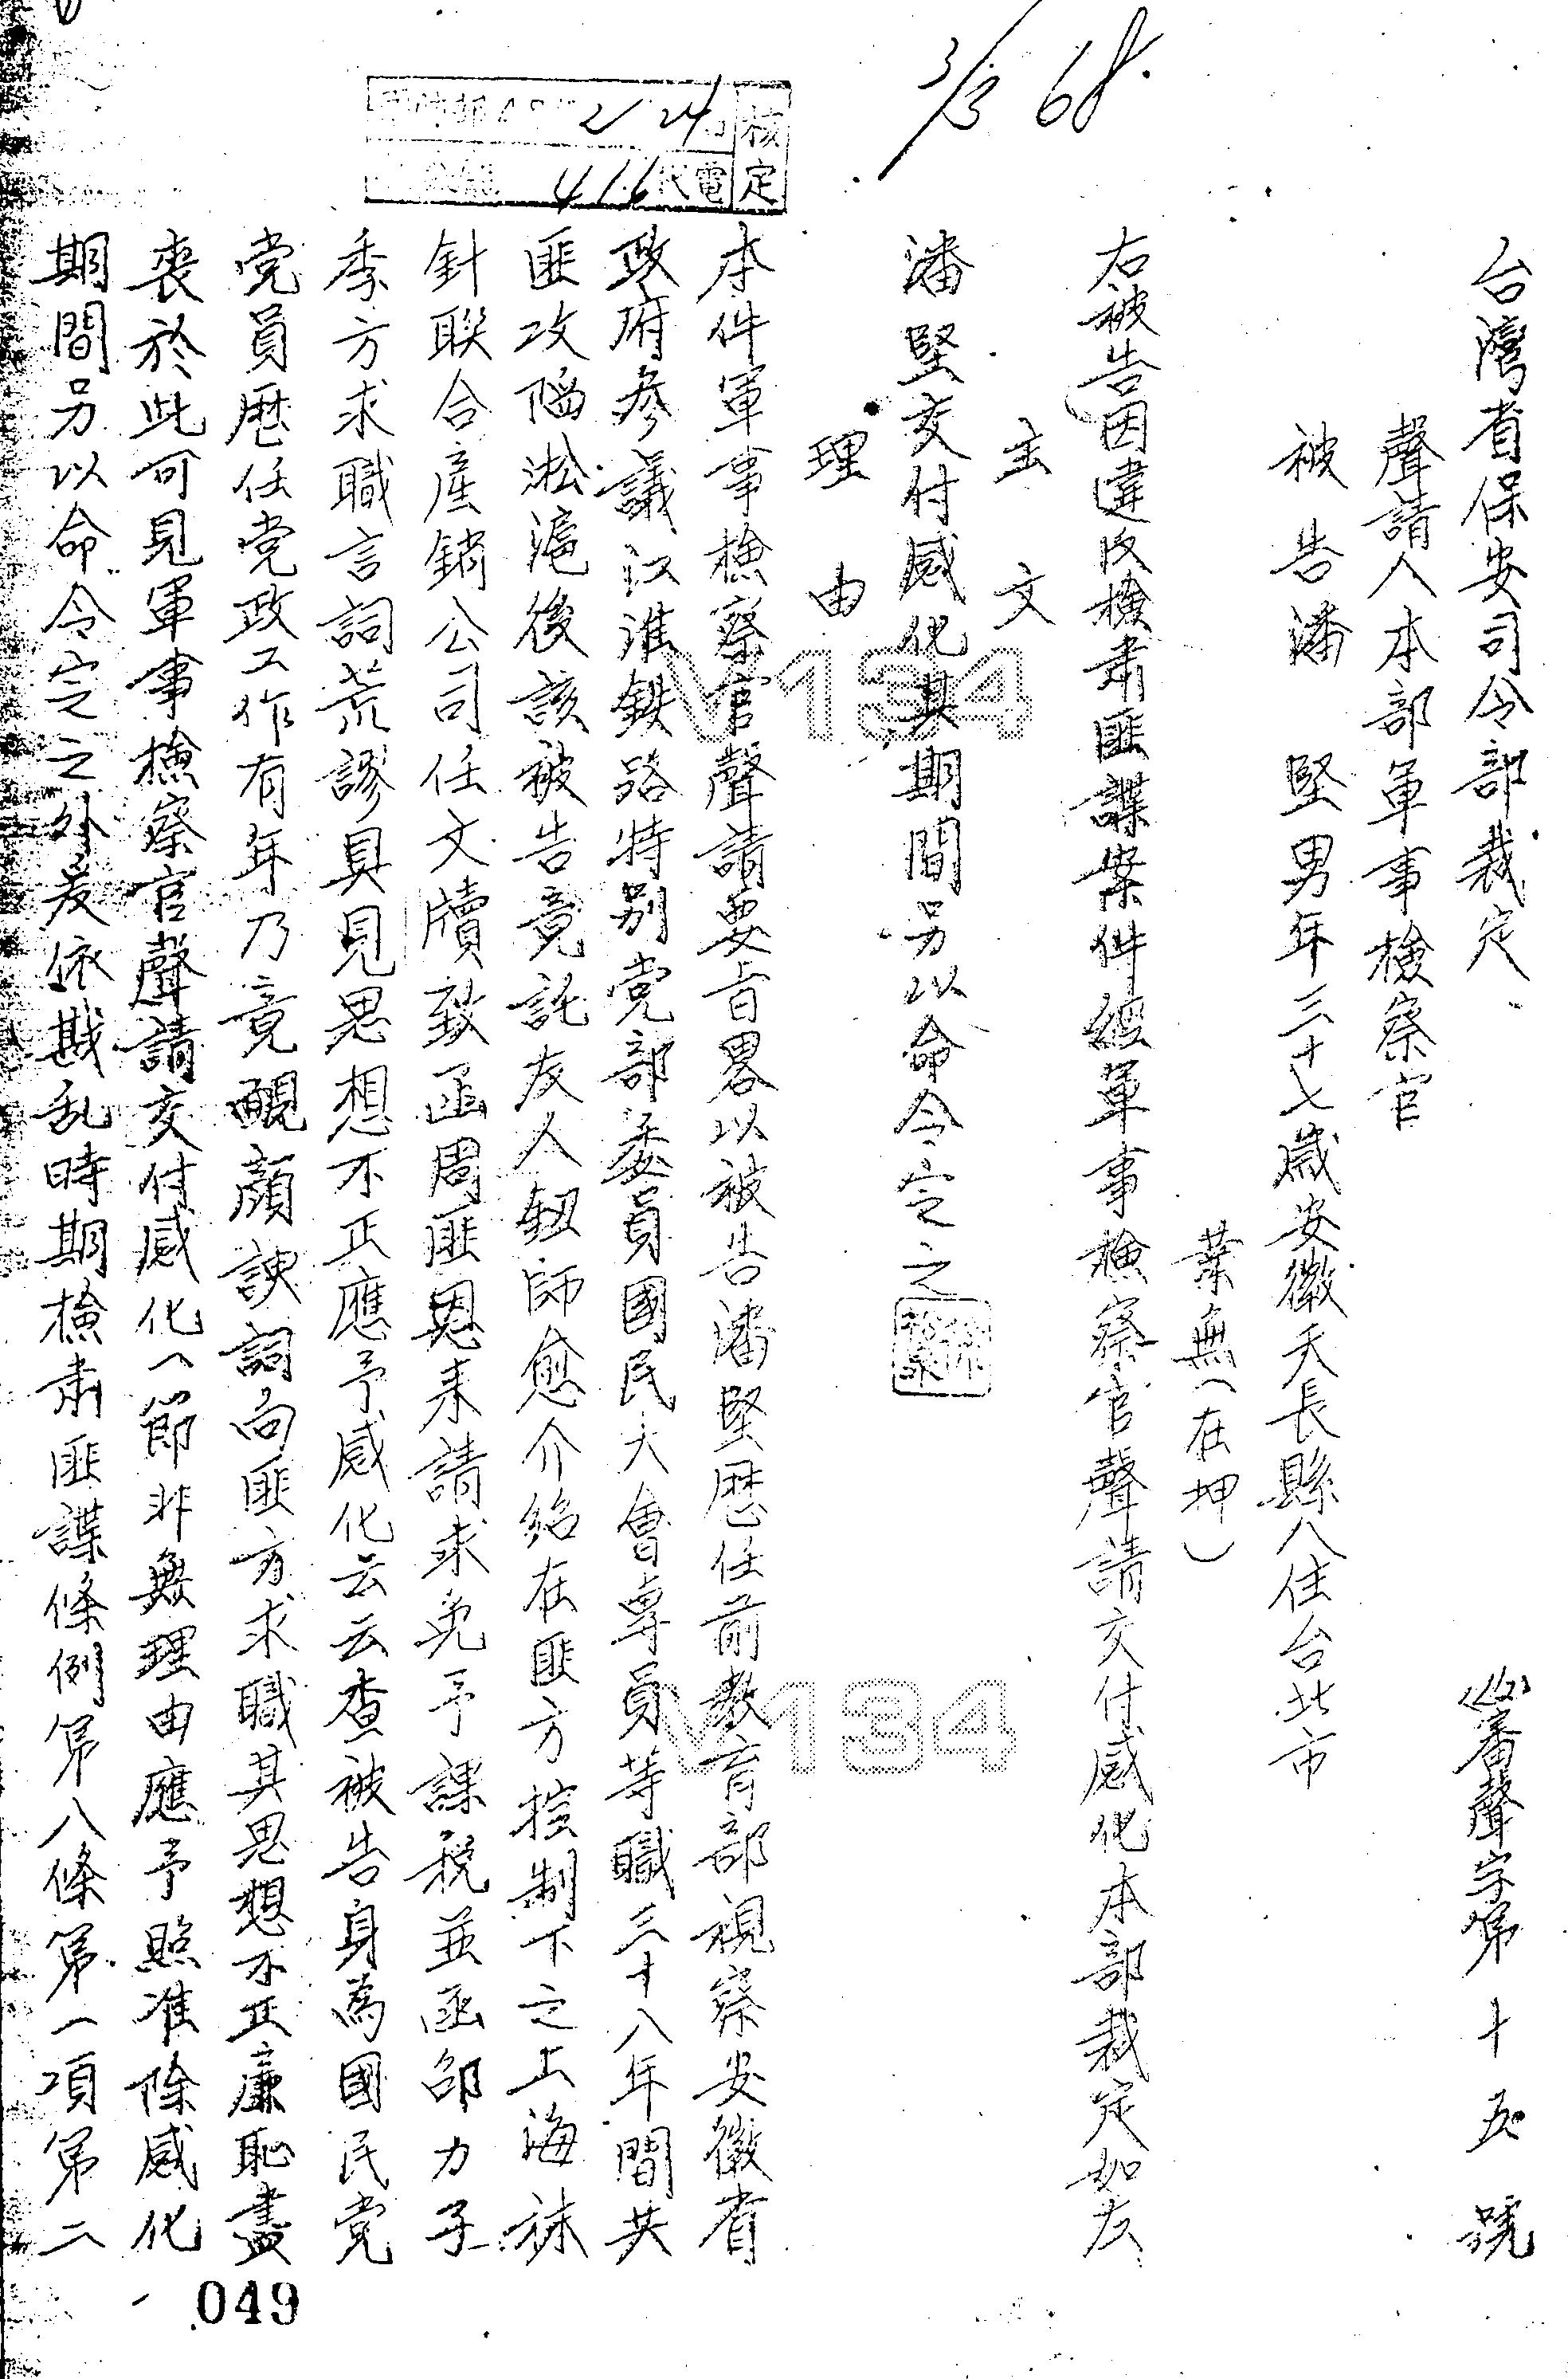 3/3 68.
核定
2/24
代電 416
台灣省保安司令部裁定
審聲字第十五號
聲請人本部軍事檢察官
被告潘 堅男年三十七歲安徽天長縣人住台北市
業無(在押)
右被告因違反檢肅匪諜案件經軍事檢察官聲請交付感化本部裁定如左
主文
潘堅交付感化其期間另以命令定之
理由
本件軍事檢察官聲請要旨畧以被告潘堅歷任前教育部視察安徽省
政府參議江淮鉄路特別党部委員國民大會專員等職三十八年間共
匪攻陷淞滬後該被告竟託友人鈕師愈介紹在匪方控制下之上海袜
針聯合産銷公司任文牘致函周匪恩来請求免予課税並函邵力子
季方求職言詞荒謬具見思想不正應予感化云云查被告身為國民党
党員歷任党政工作有年乃竟靦顔諛詞向匪方求職其思想不正廉恥盡
喪於此可見軍事檢察官聲請交付感化一節非無理由應予照准除感化
期間另以命令定之外爰依戡乱時期檢肅匪諜條例第八條第一項第二
049
V134
V134